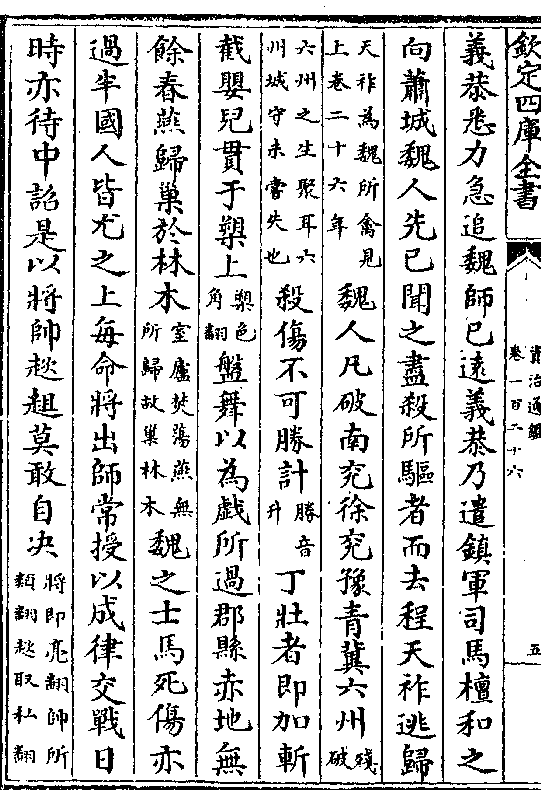 欽定四庫全書
資治通鑑
卷一百二十六
五
義恭悉力急追魏師已遠義恭乃遣鎮軍司馬檀和之
向蕭城魏人先已聞之盡殺所驅者而去程天祚逃歸
天祚為魏所禽見
上卷二十六年
魏人凡破南兖徐兖豫青冀六州
殘破
六州之生聚耳六
州城守未嘗失也
殺傷不可勝計
勝音
升
丁壯者即加斬
截嬰兒貫于槊上
槊色
角翻
盤舞以為戯所過郡縣赤地無
餘春燕歸巢於林木
室廬焚蕩燕無
所歸故巢林木
魏之士馬死傷亦
過半國人皆尤之上每命將出師常授以成律交戰日
時亦待中詔是以將帥趑趄莫敢自决
將即亮翻帥所
類翻趑取私翻